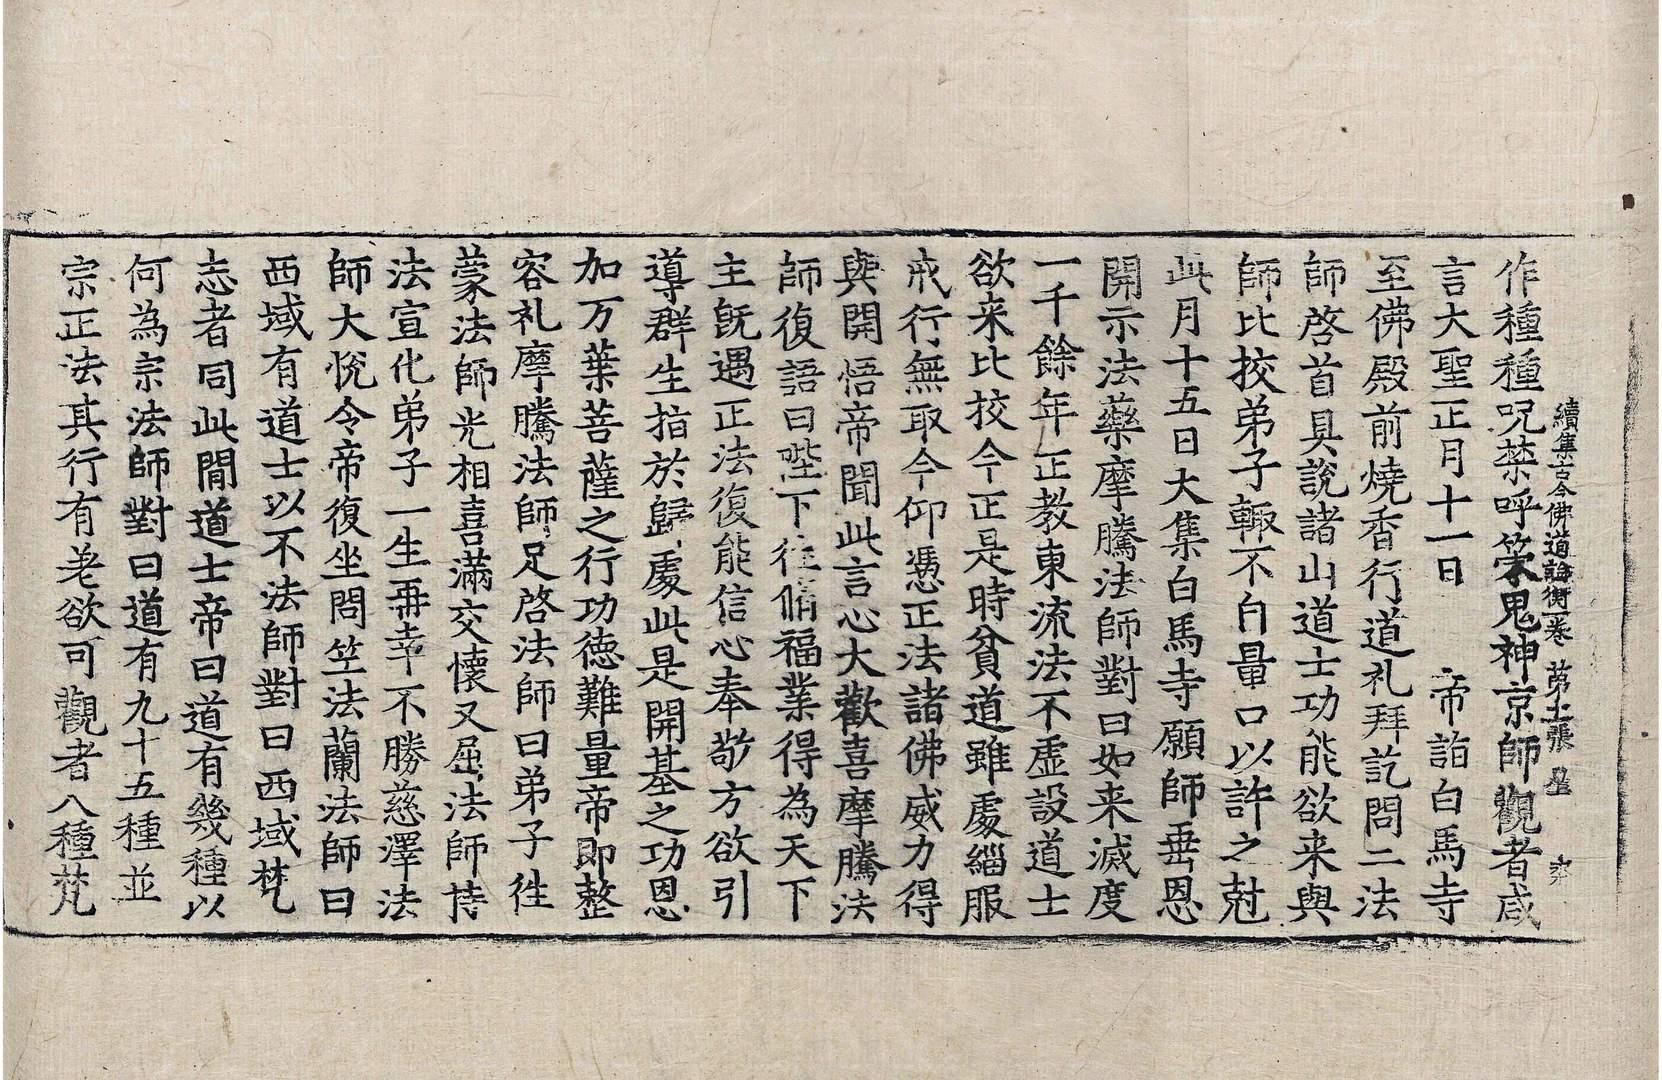 續集古今佛道論衡一卷 第十二張 星
作種種呪禁呼策鬼神京師觀者咸
言大聖正月十一日 帝詣白馬寺
至佛殿前燒香行道礼拜訖問二法
師啓首具說諸山道士功能欲来與
師比挍弟子輙不自量口以許之尅
此月十五日大集白馬寺願師垂恩
開示法藥摩騰法師對曰如来滅度
一千餘年正教東流法不虚設道士
欲来比挍今正是時貧道雖處緇服
戒行無取今仰憑正法諸佛威力得
與開悟帝聞此言心大歡喜摩騰法
師復語曰陛下往脩福業得為天下
主旣遇正法復能信心奉敬方欲引
導群生指於歸處此是開基之功恩
加万葉菩薩之行功德難量帝即整
容礼摩騰法師足啓法師曰弟子徃
蒙法師光相喜滿交懷又屈法師持
法宣化弟子一生再幸不勝慈澤法
師大悅令帝復坐問竺法蘭法師曰
西域有道士以不法師對曰西域梵
志者同此間道士帝曰道有幾種以
何為宗法師對曰道有九十五種並
宗正法其行有差欲可觀者八種梵